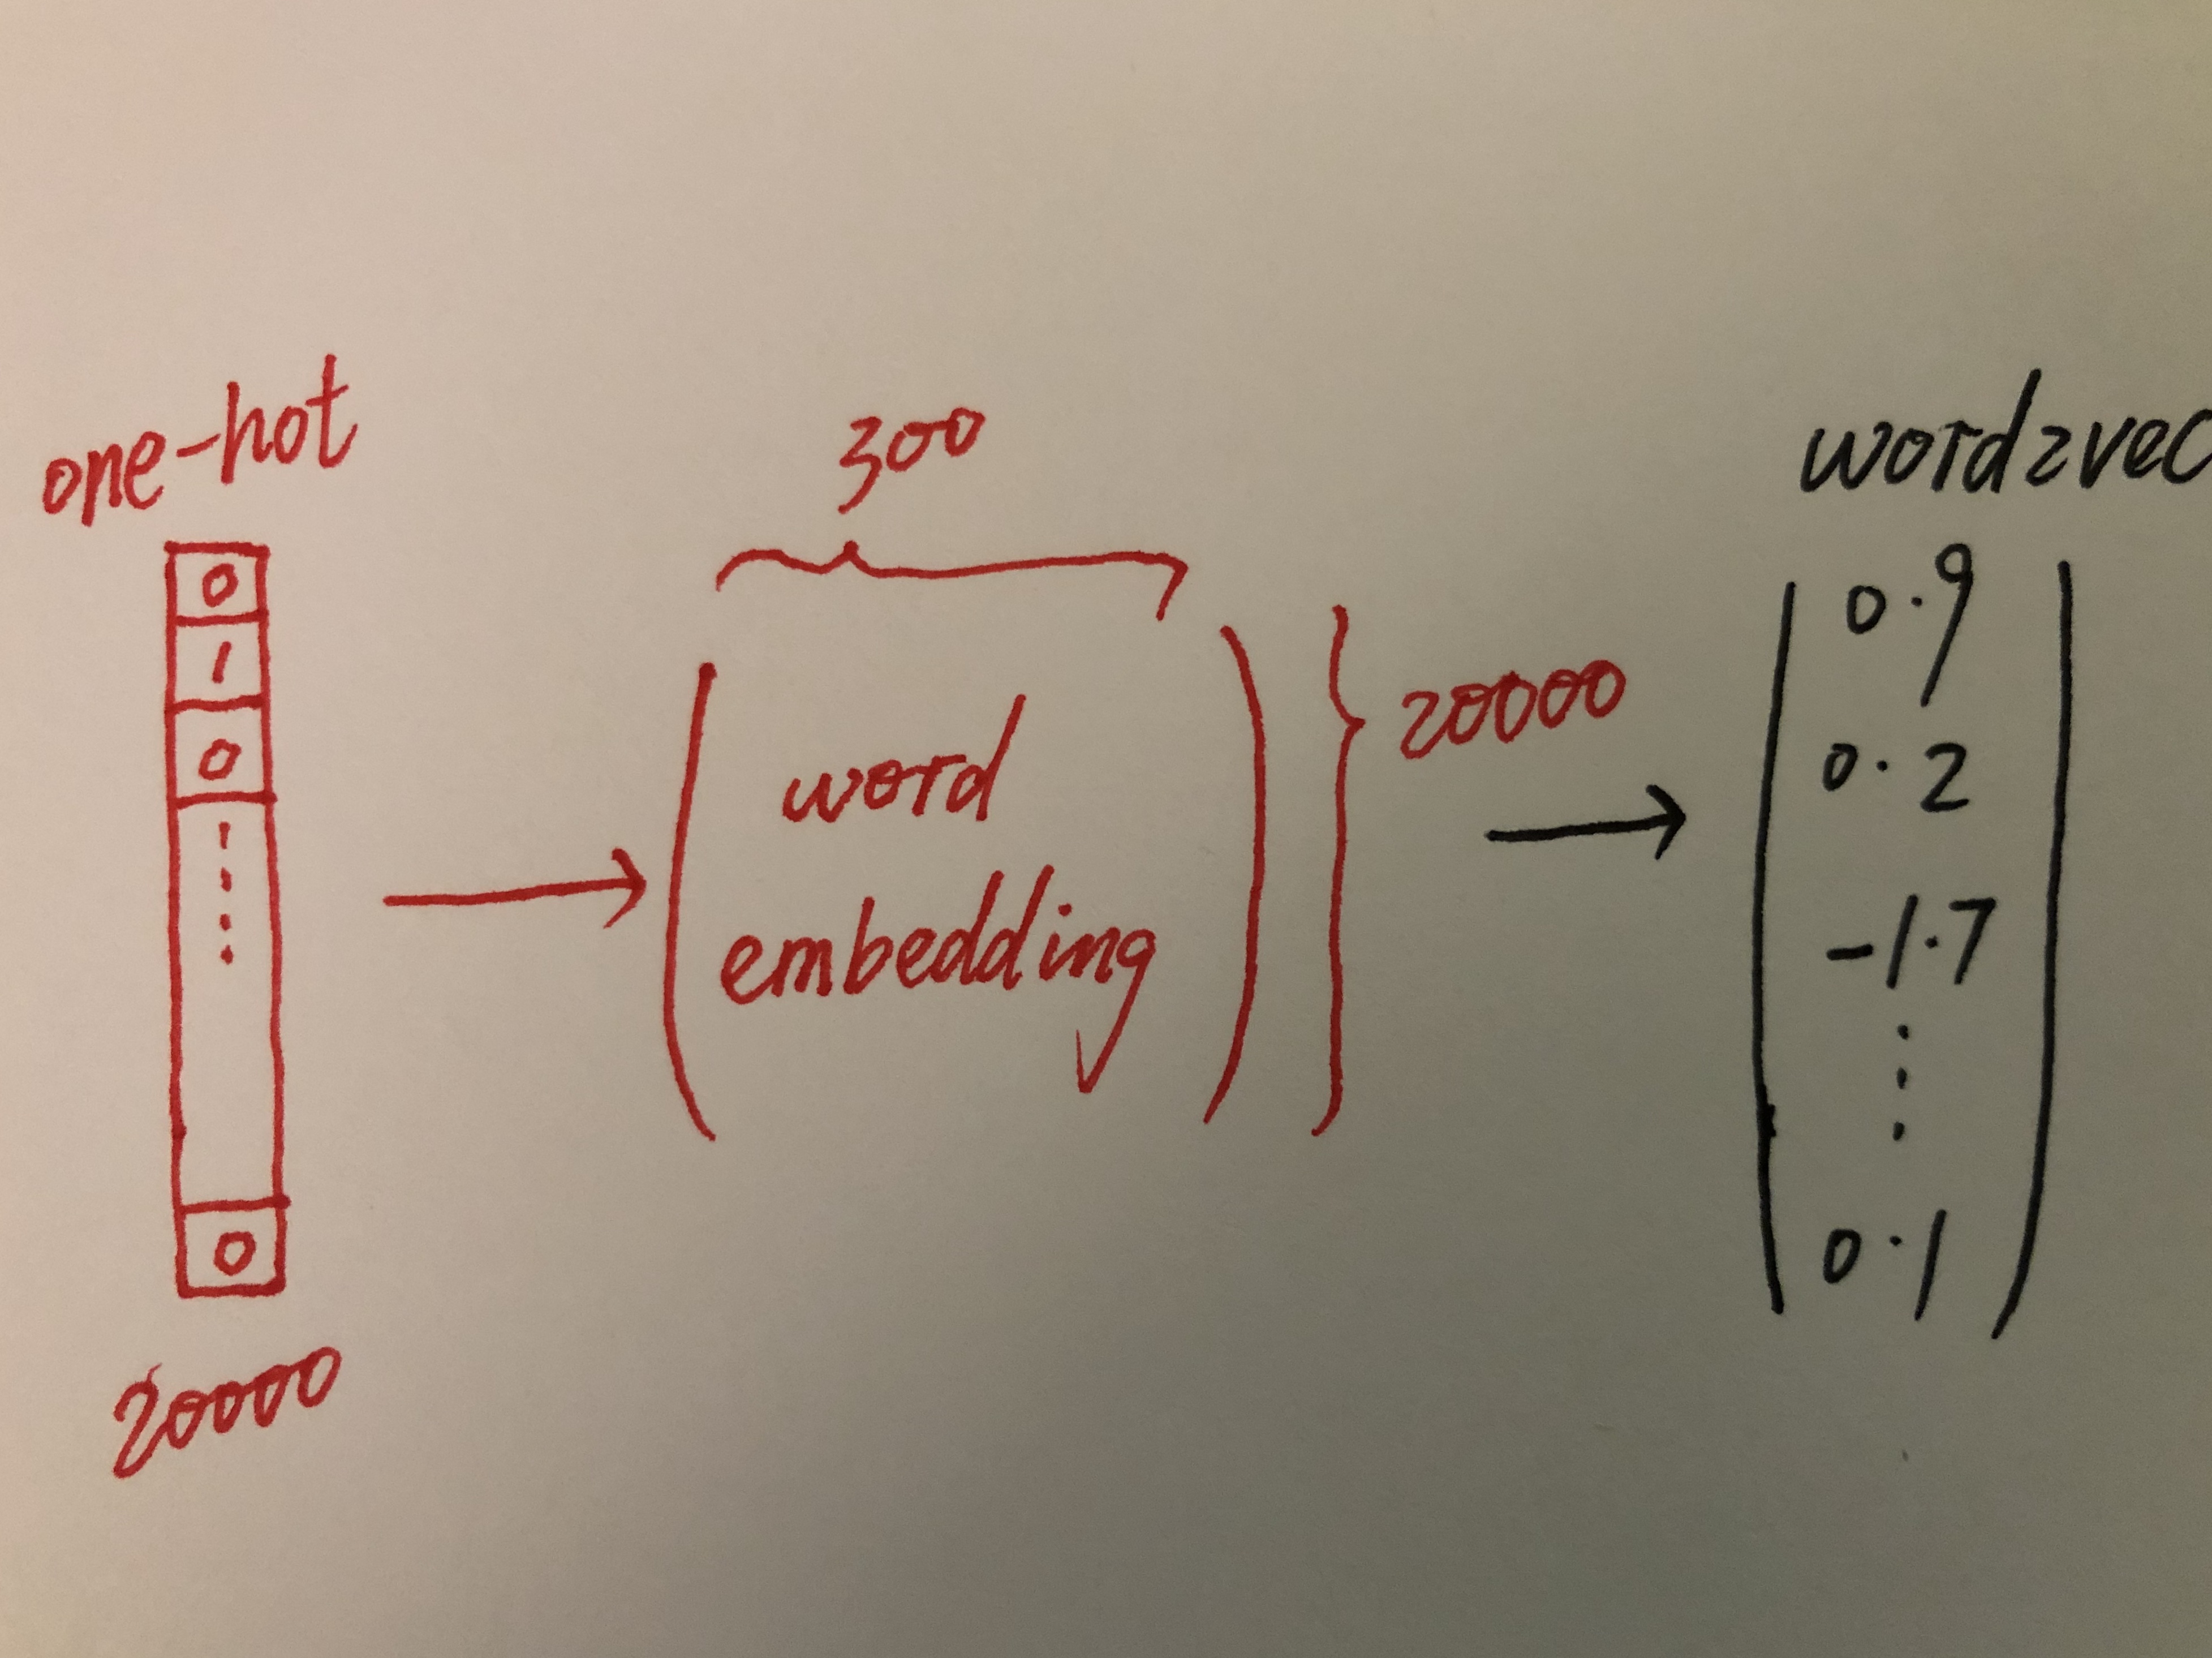 one-hot
0
1
0
0
20000
300
word
embedding
20000
word2vec
0.9
0.2
-1.7
0.1